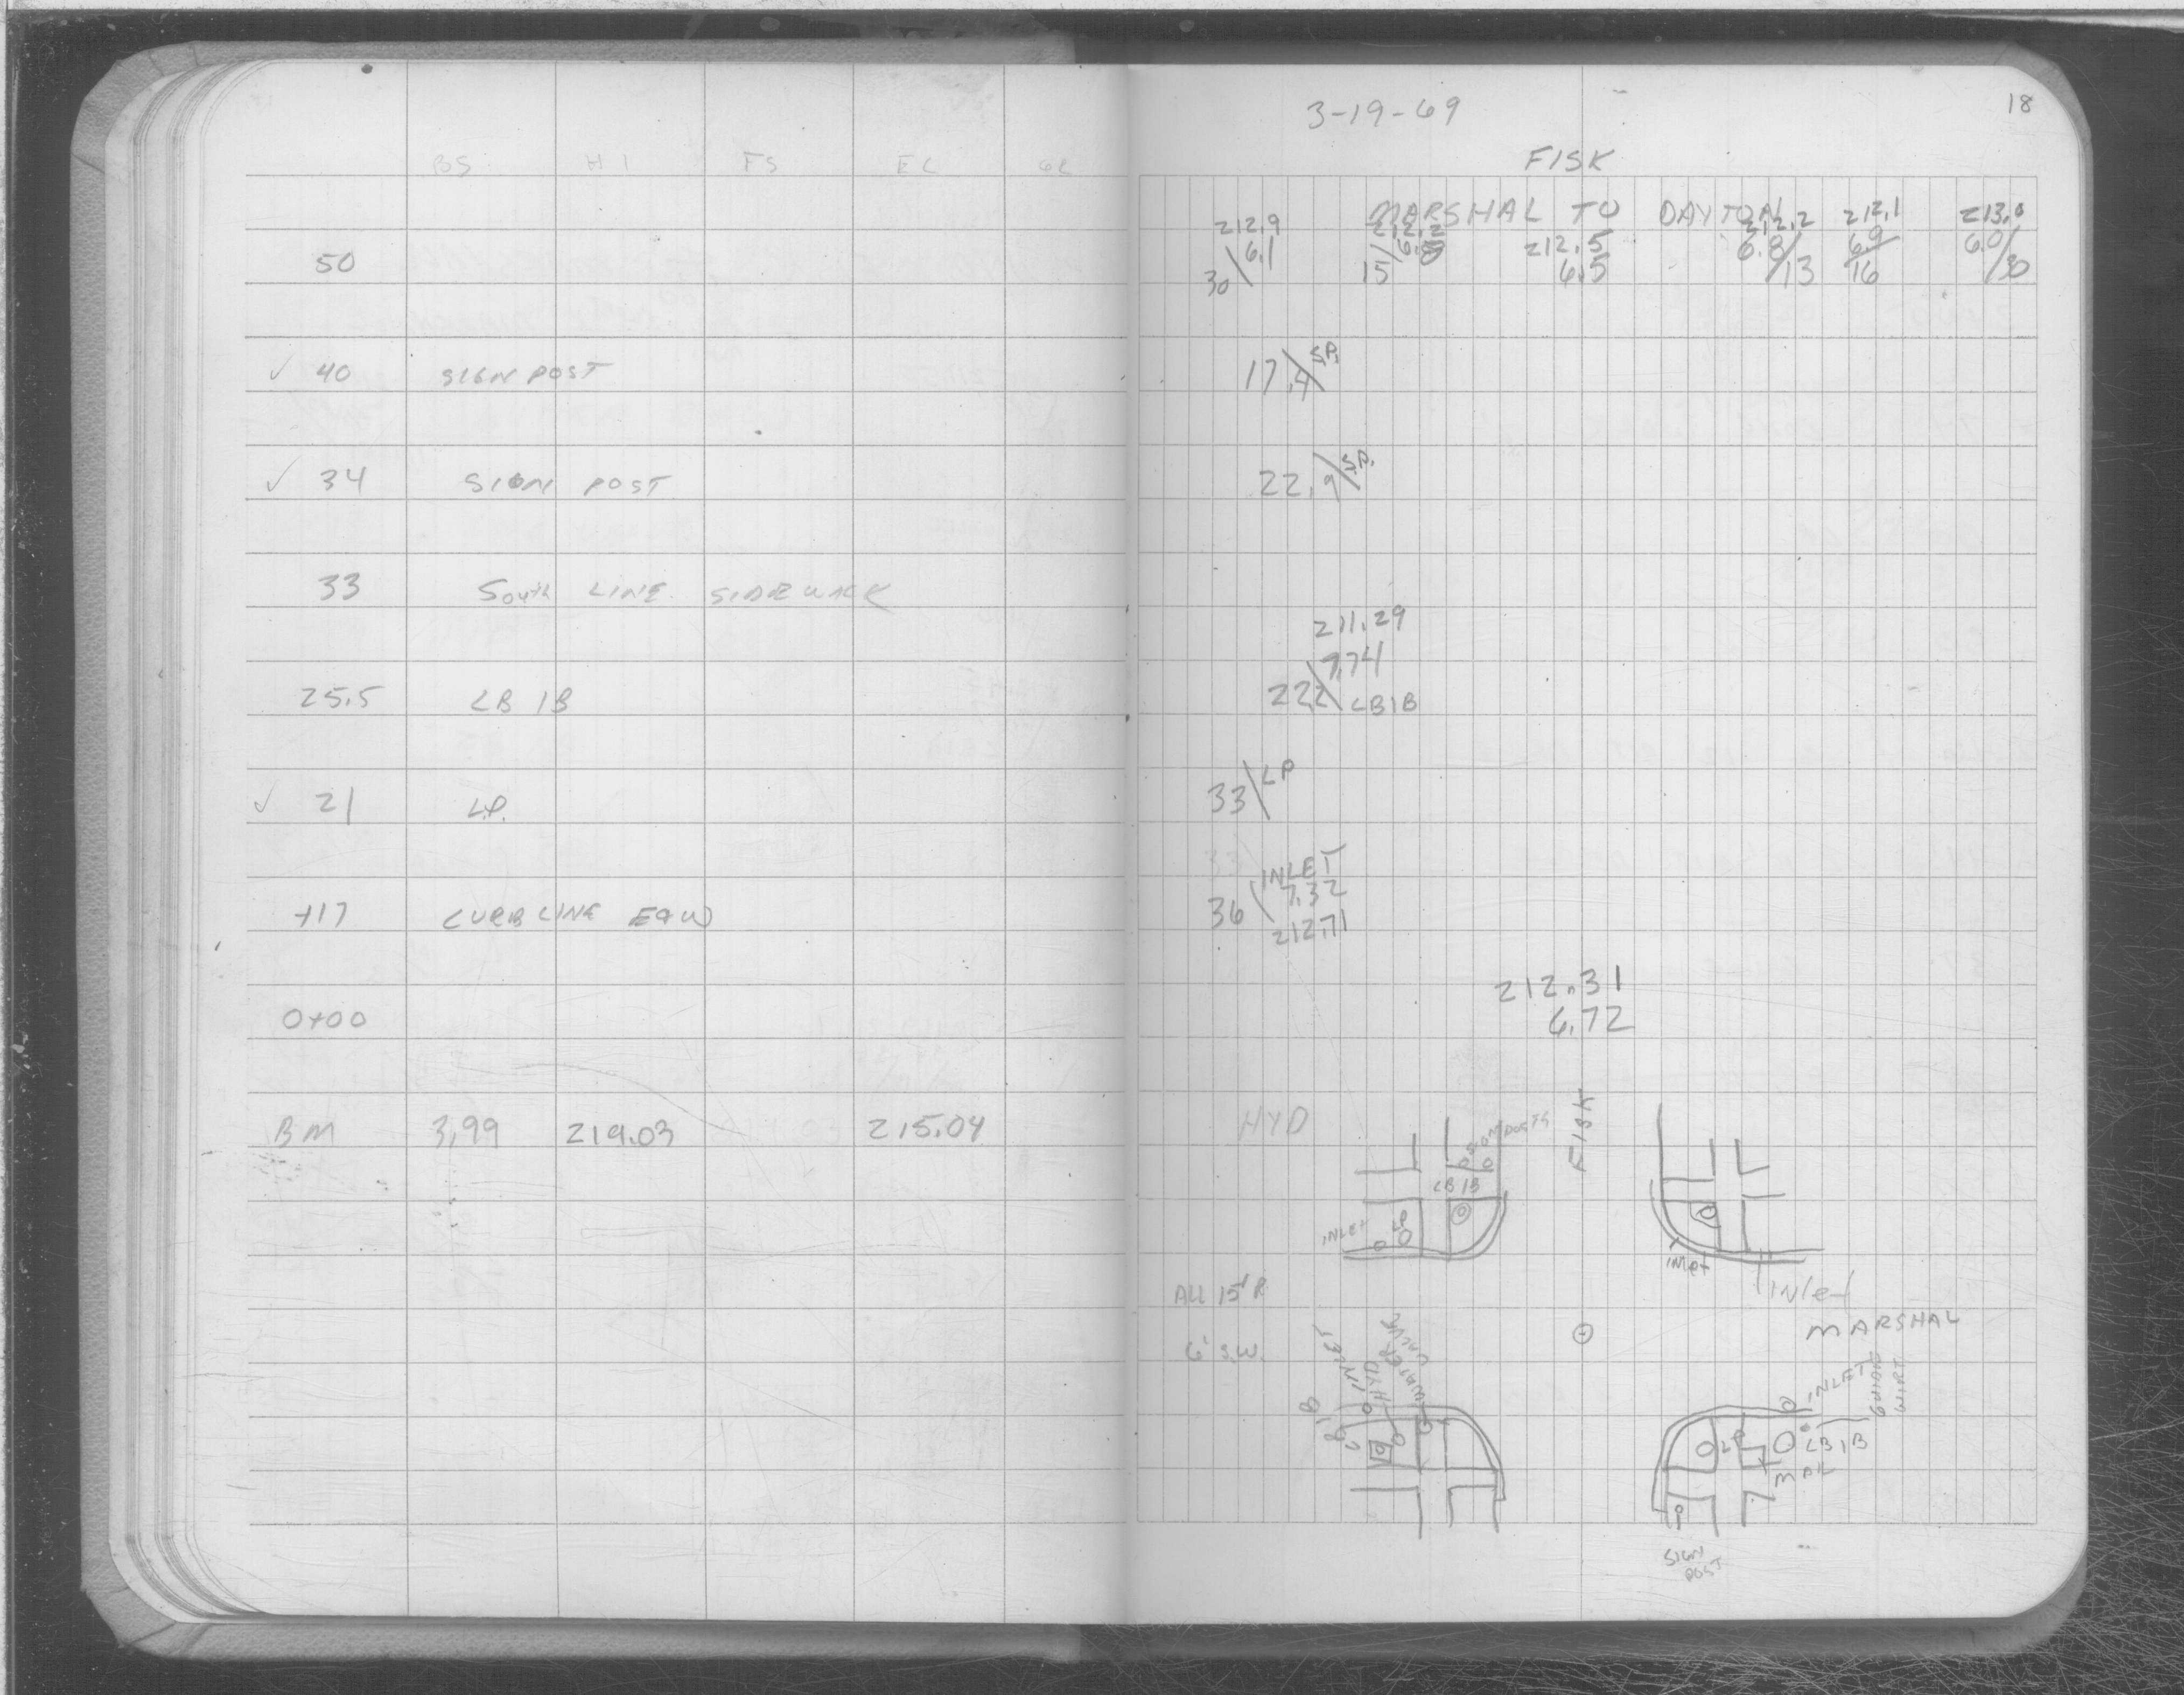 BS HI FS EL GR
50
✓ 40 SIGN POST
✓ 34 SIGN POST
33 South LINE SIDEWALK
25.5 LB 1B
✓ 21 L.P.
+17 CURB LINE E&W
0+00
BM 3.99 219.03 215.04
3-19-69
18
FISK
MARSHAL TO DAYTON
212.9 212.2 212.5 212.2 212.1 213.0
6.1 6.8 6.5 6.8 6.9 6.0
30 15 13 16 30
17.4 S.P.
22.9 S.P.
211.29
7.74
22.2 LB1B
33 LP
INLET
36 7.32
212.71
212.31
6.72
HYD
FISK
SIGN POSTS
LB 1B
INLET LP
INLet
INLet
ALL 15' R
MARSHAL
6' S.W.
INLET
HYD
WATER VALVE
LB 1B
INLET
GUIDE WIRE
LP
LB 1B
MAIL
SIGN
POST